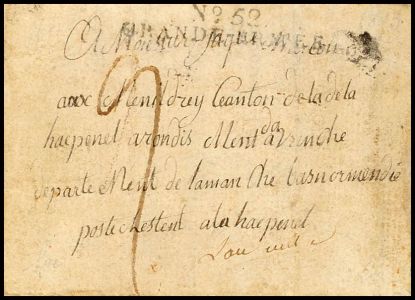 No 52
GRANDE-ARMÉE
A Monsieur
aux Menildrey Canton de la dela
haepenel arondis Ment da vrenche
departe Ment de laman che basnormendie
poste chestent a la haepenel